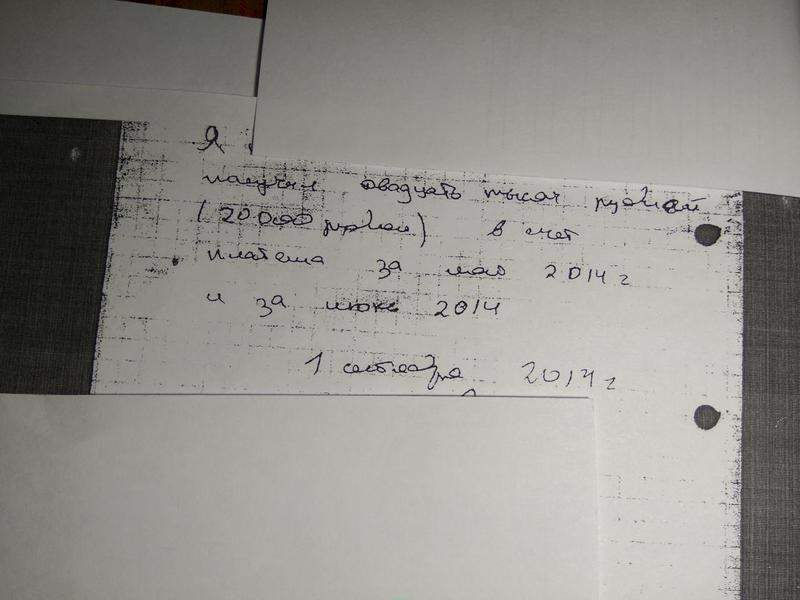 Я
получил двадцать тысяч рублей
(20000 рублей) в счет
платежа за май 2014 г
и за июнь 2014
1 сентября 2014 г